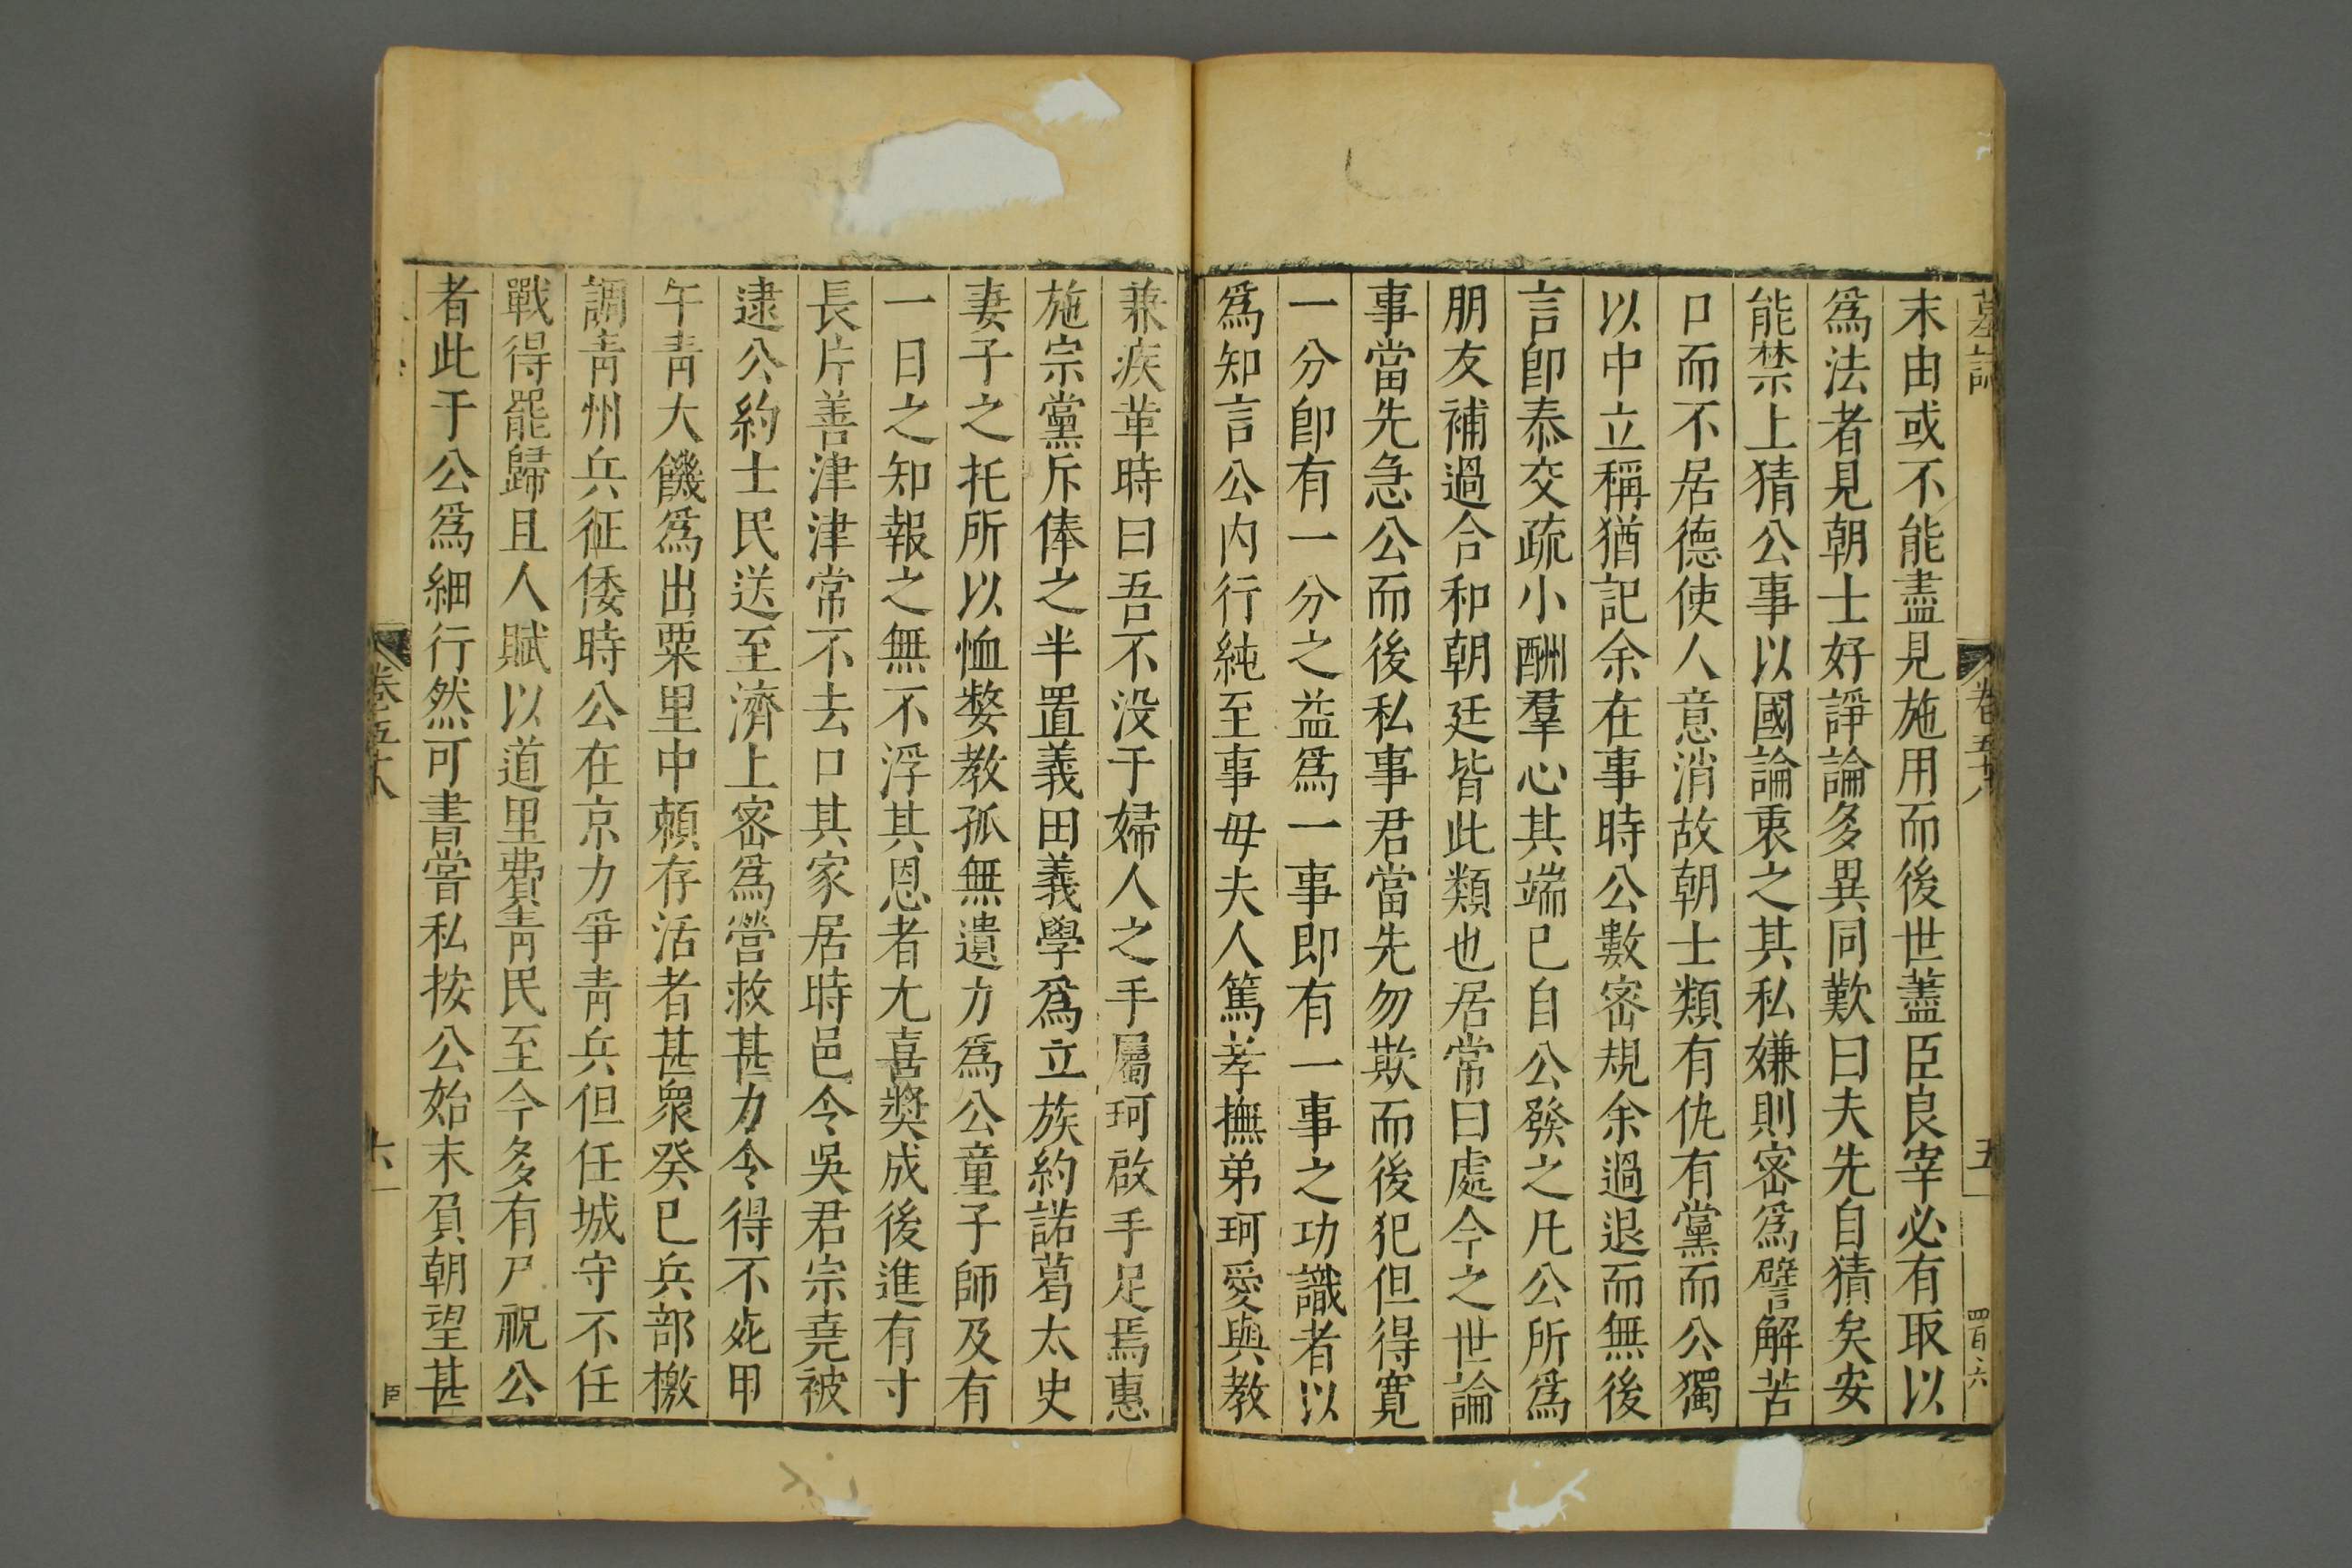 墓誌 卷五十八 五 四百六
末由或不能盡見施用而後世藎臣良宰必有取以
爲法者見朝士好諍論多異同歎曰夫先自猜矣安
能禁上猜公事以國論衷之其私嫌則密爲譬解苦
口而不居德使人人意消故朝士類有仇有黨而公獨
以中立稱猶記余在事時公數密規余過退而無後
言卽泰交疏小酬羣心其端已自公發之凡公所爲
朋友補過合和朝廷皆此類也居常曰處今之世論
事當先急公而後私事君當先勿欺而後犯但得寬
一分卽有一分之益爲一事即有一事之功識者以
爲知言公內行純至事母夫人篤孝撫弟珂愛與教
兼疾革時曰吾不没于婦人之手屬珂啟手足焉惠
施宗黨斥俸之半置義田義學爲立族約諾葛太史
妻子之托所以恤嫠教孤無遺力爲公童子師及有
一日之知報之無不浮其恩者尤喜奬成後進有寸
長片善津津常不去口其家居時邑令吳君宗堯被
逮公約士民送至濟上密爲營救甚力令得不死甲
午青大饑爲出粟里中賴存活者甚衆癸巳兵部檄
調青州兵征倭時公在京力爭青兵但任城守不任
戰得罷歸且人賦以道里費青民至今多有尸祝公
者此于公爲細行然可書嘗私按公始末負朝望甚
卷五十八 六 臣